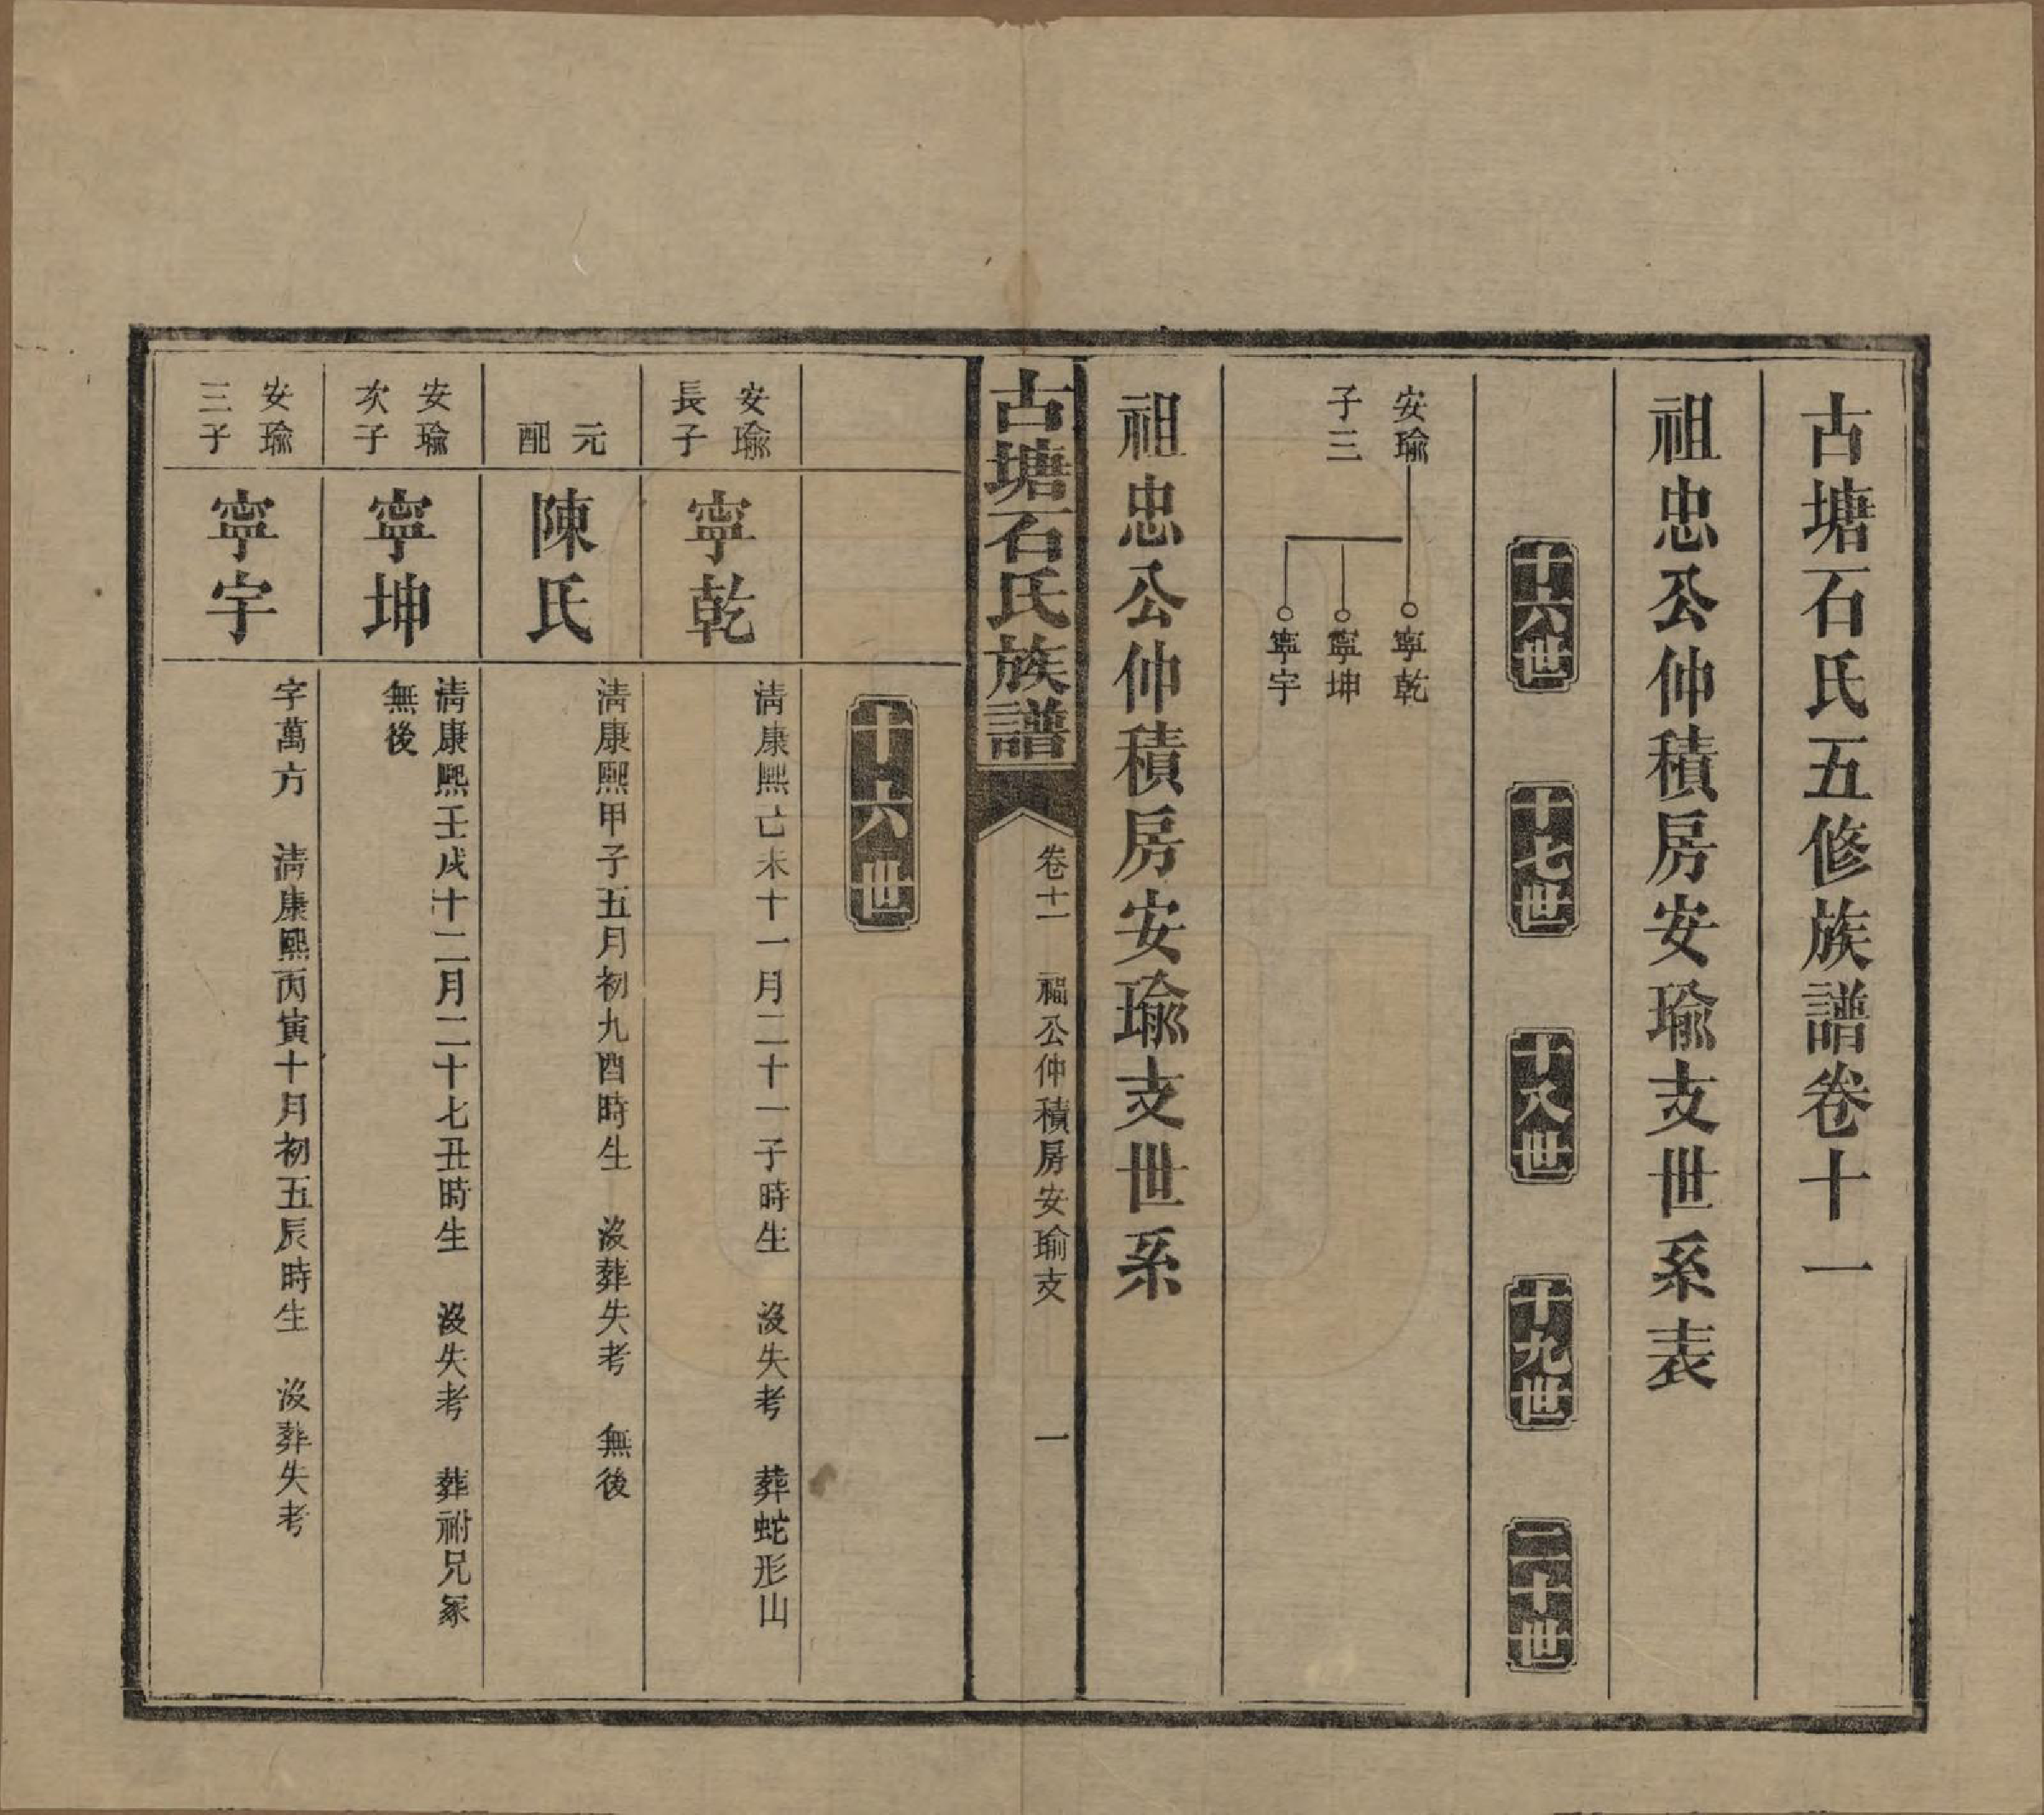 古塘石氏五修族譜卷十一
祖忠公仲積房安瑜支世系表
十六世　十七世　十八世　十九世　二十世
安瑜
子三
寧乾
寧坤
寧宇
祖忠公仲積房安瑜支世系
古塘石氏族譜　卷十一　福公仲積房安瑜支　一
十六世
安瑜長子
寧乾
淸康熙己未十一月二十一子時生　沒失考　葬蛇形山
元配
陳氏
淸康熙甲子五月初九酉時生　沒葬失考　無後
安瑜次子
寧坤
淸康熙壬戌十二月二十七丑時生　沒失考　葬祔兄冢
無後
安瑜三子
寧宇
字萬方　淸康熙丙寅十月初五辰時生　沒葬失考